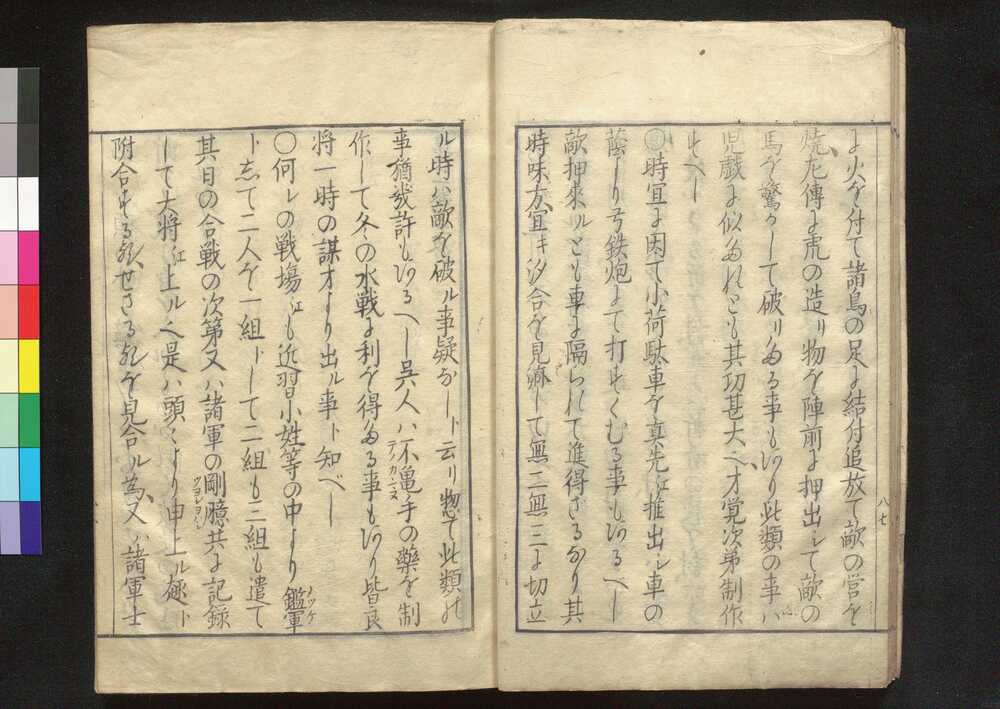 に火を付て諸鳥の足に結付追放て敵の営を
焼、左傳に虎の造リ物を陣前に押出して敵の
馬を驚かして破りたる事もあり此類の事ハ
児戯に似たれとも其功甚大へ、才覚次第制作
すへし
○時宜に因て小荷駄車を真先江推出シ車の
蔭より弓鉄炮にて打すくむる事もあるへし
敵押来ルとも車に隔られて進得さるなり其
時味方宜キ汐合を見済して無二無三に切立
八七
ル時ハ敵を破ル事疑なしト云リ惣て此類の
事猶幾許もあるへし呉人ハ不亀手の藥を制
テノカヽマヌ
作して冬の水戦に利を得たる事もあり皆良
将一時の謀才より出ル事ト知べし
○何レの戦場江も近習小姓等の中より鑑軍
メツケ
ト志て二人を一組トして二組も三組も遣て
其日の合戦の次第又ハ諸軍の剛臆共に記録
ツヨシヨハシ
して大将江上ルへ是ハ頭々より申上ル趣ト
附合する歟、せさる歟を見合ル為、又ハ諸軍士